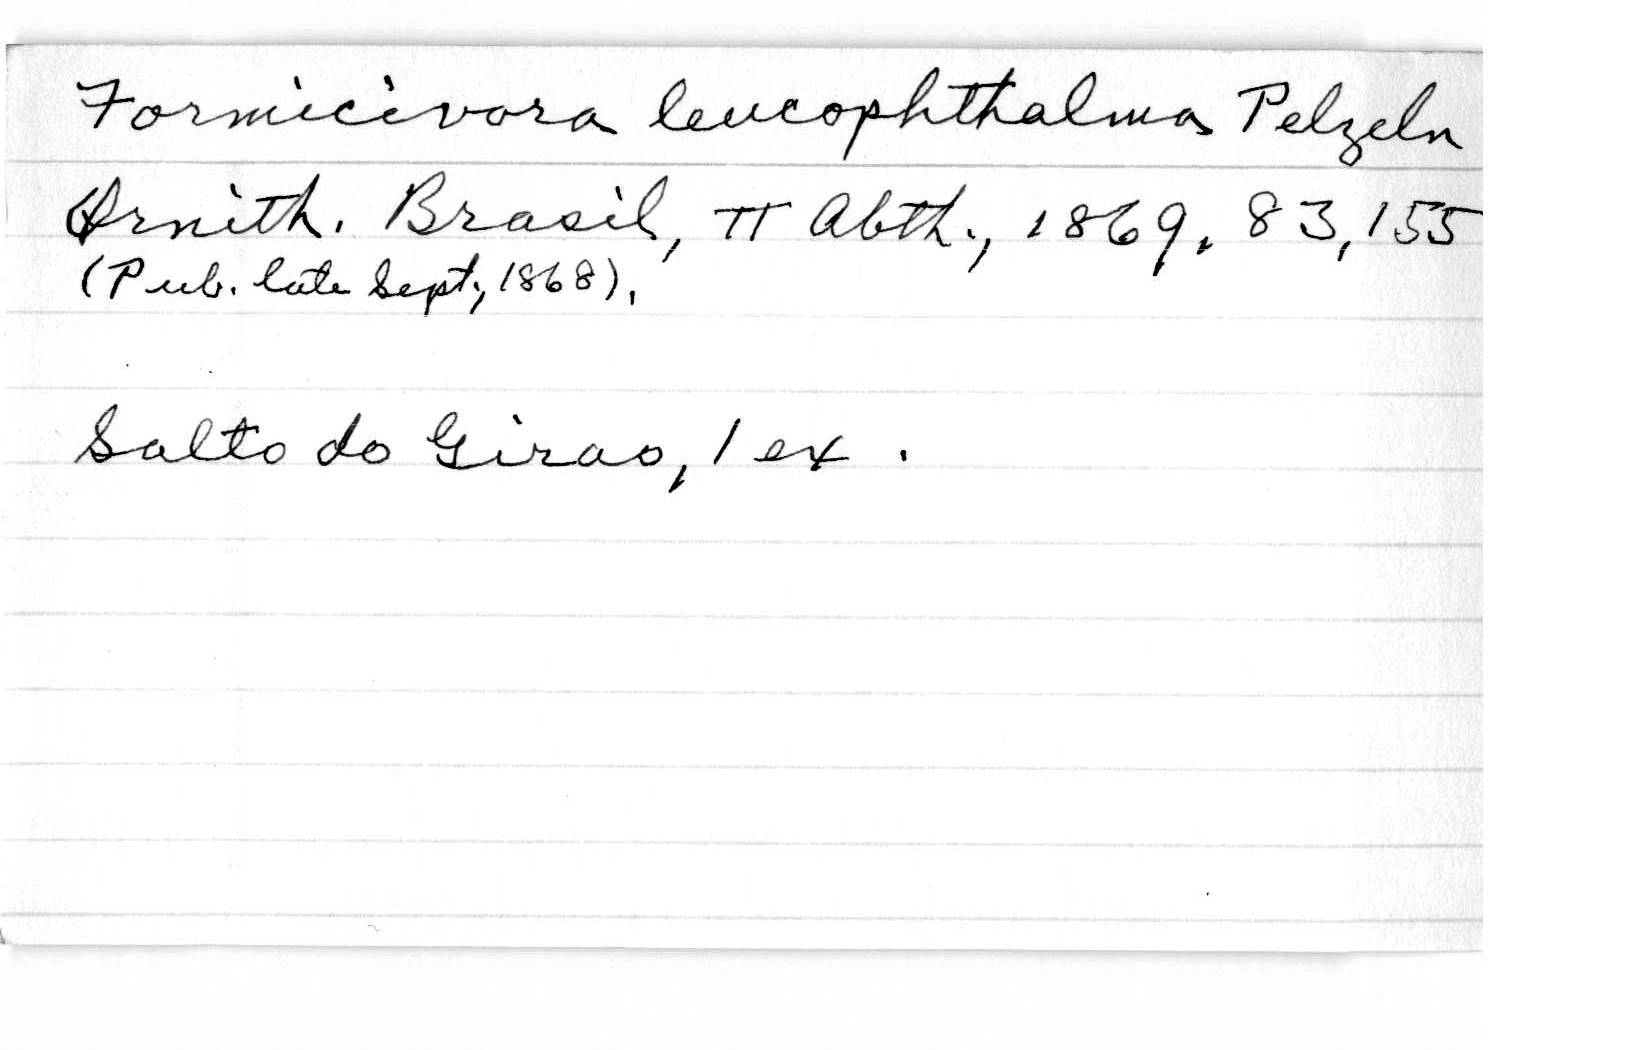 Formicivora leucophthalma Pelzeln
Ornith. Brasil, II Abth., 1869, 83, 155
(Pub. late Sept., 1868).
Salto do Girao, 1 ex.